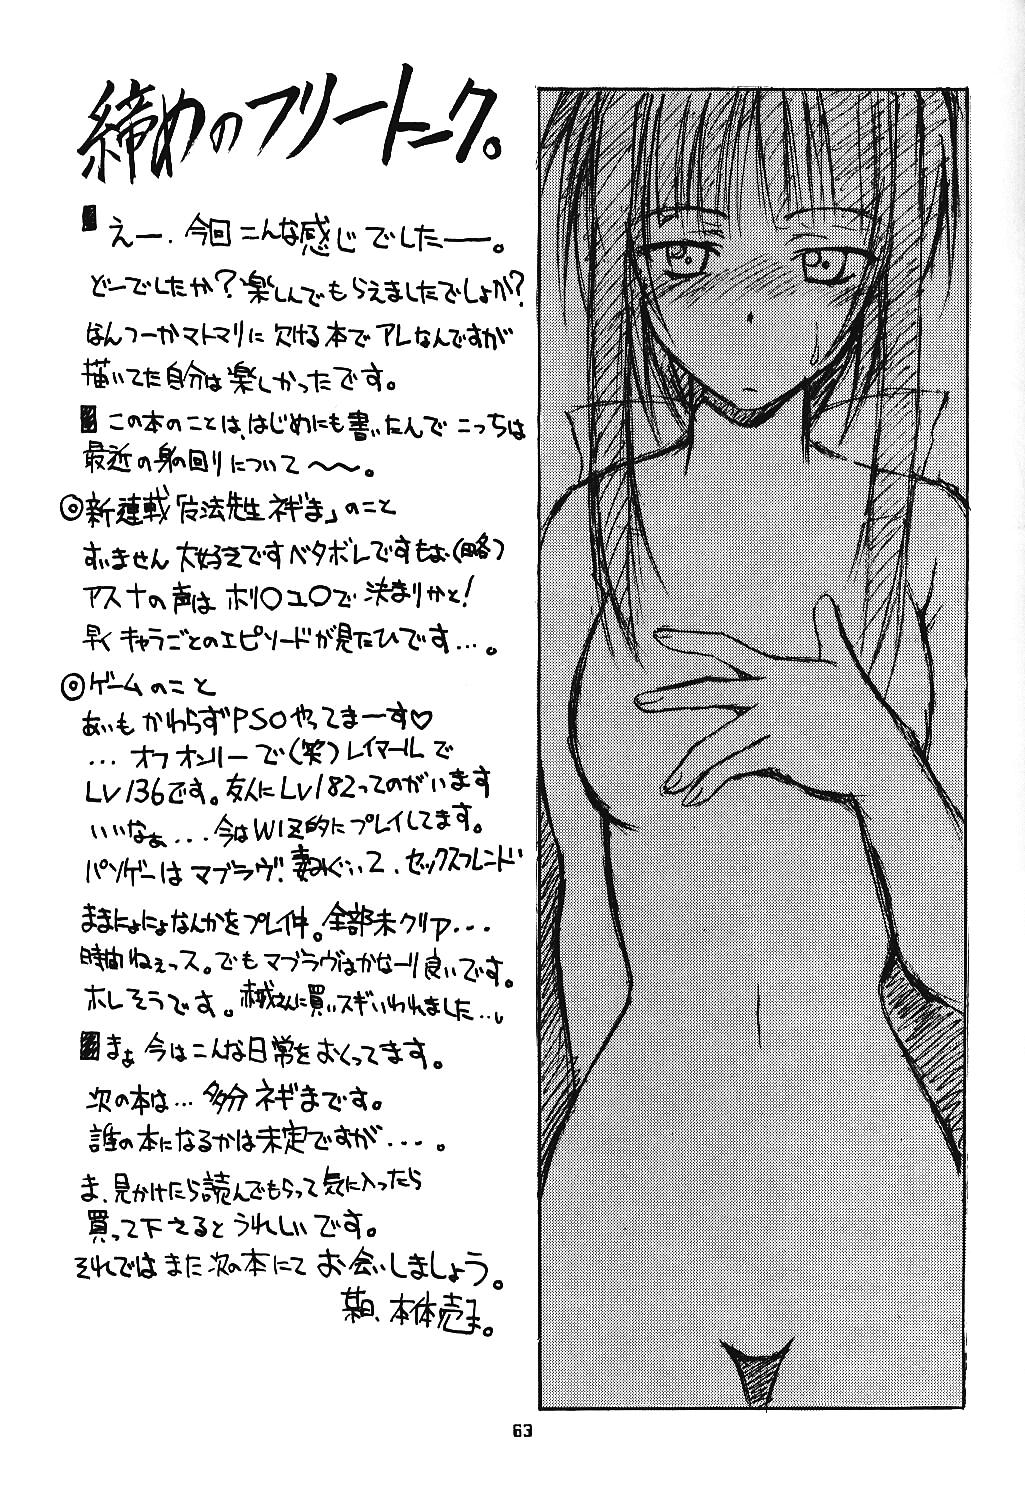 締めのフリートーク。
えー、今回こんな感じでしたー。
どーでしたか?楽しんでもらえましたでしょか?
なんつーかマトマリに欠ける本でアレなんですが
描いてた自分は楽しかったです。
この本のことは、はじめにも書いたんでこっちは
最近の身の回りについて〜〜。
◎新連載「魔法先生ネギま」のこと
すいません大好きですベタボレですもぉ、(略)
アスナの声はホリ〇ユ〇で決まりかと!
早くキャラごとのエピソードが見たひです…。
◎ゲームのこと
あいもかわらずPSOやってまーす♡
…オフオンリーで(笑)レイマールで
LV136です。友人にLV182ってのがいます
いいなぁ...今はWIZ的にプレイしてます。
パソゲーはマブラヴ、妻みぐい2、セックスフレンド
ままにょにょなんかをプレイ中。全部未クリア...
時間ねぇっス。でもマブラヴはかなーり良いです。
ホレそうです。さんに買いスギいわれました...。
まぁ今はこんな日常をおくってます。
次の本は…多分ネギまです。
誰の本になるかは未定ですが...。
ま、見かけたら読んでもらって気に入ったら
買って下さるとうれしいです。
それではまた次の本にてお会いしましょう。
某日、本体の壱ま。
63